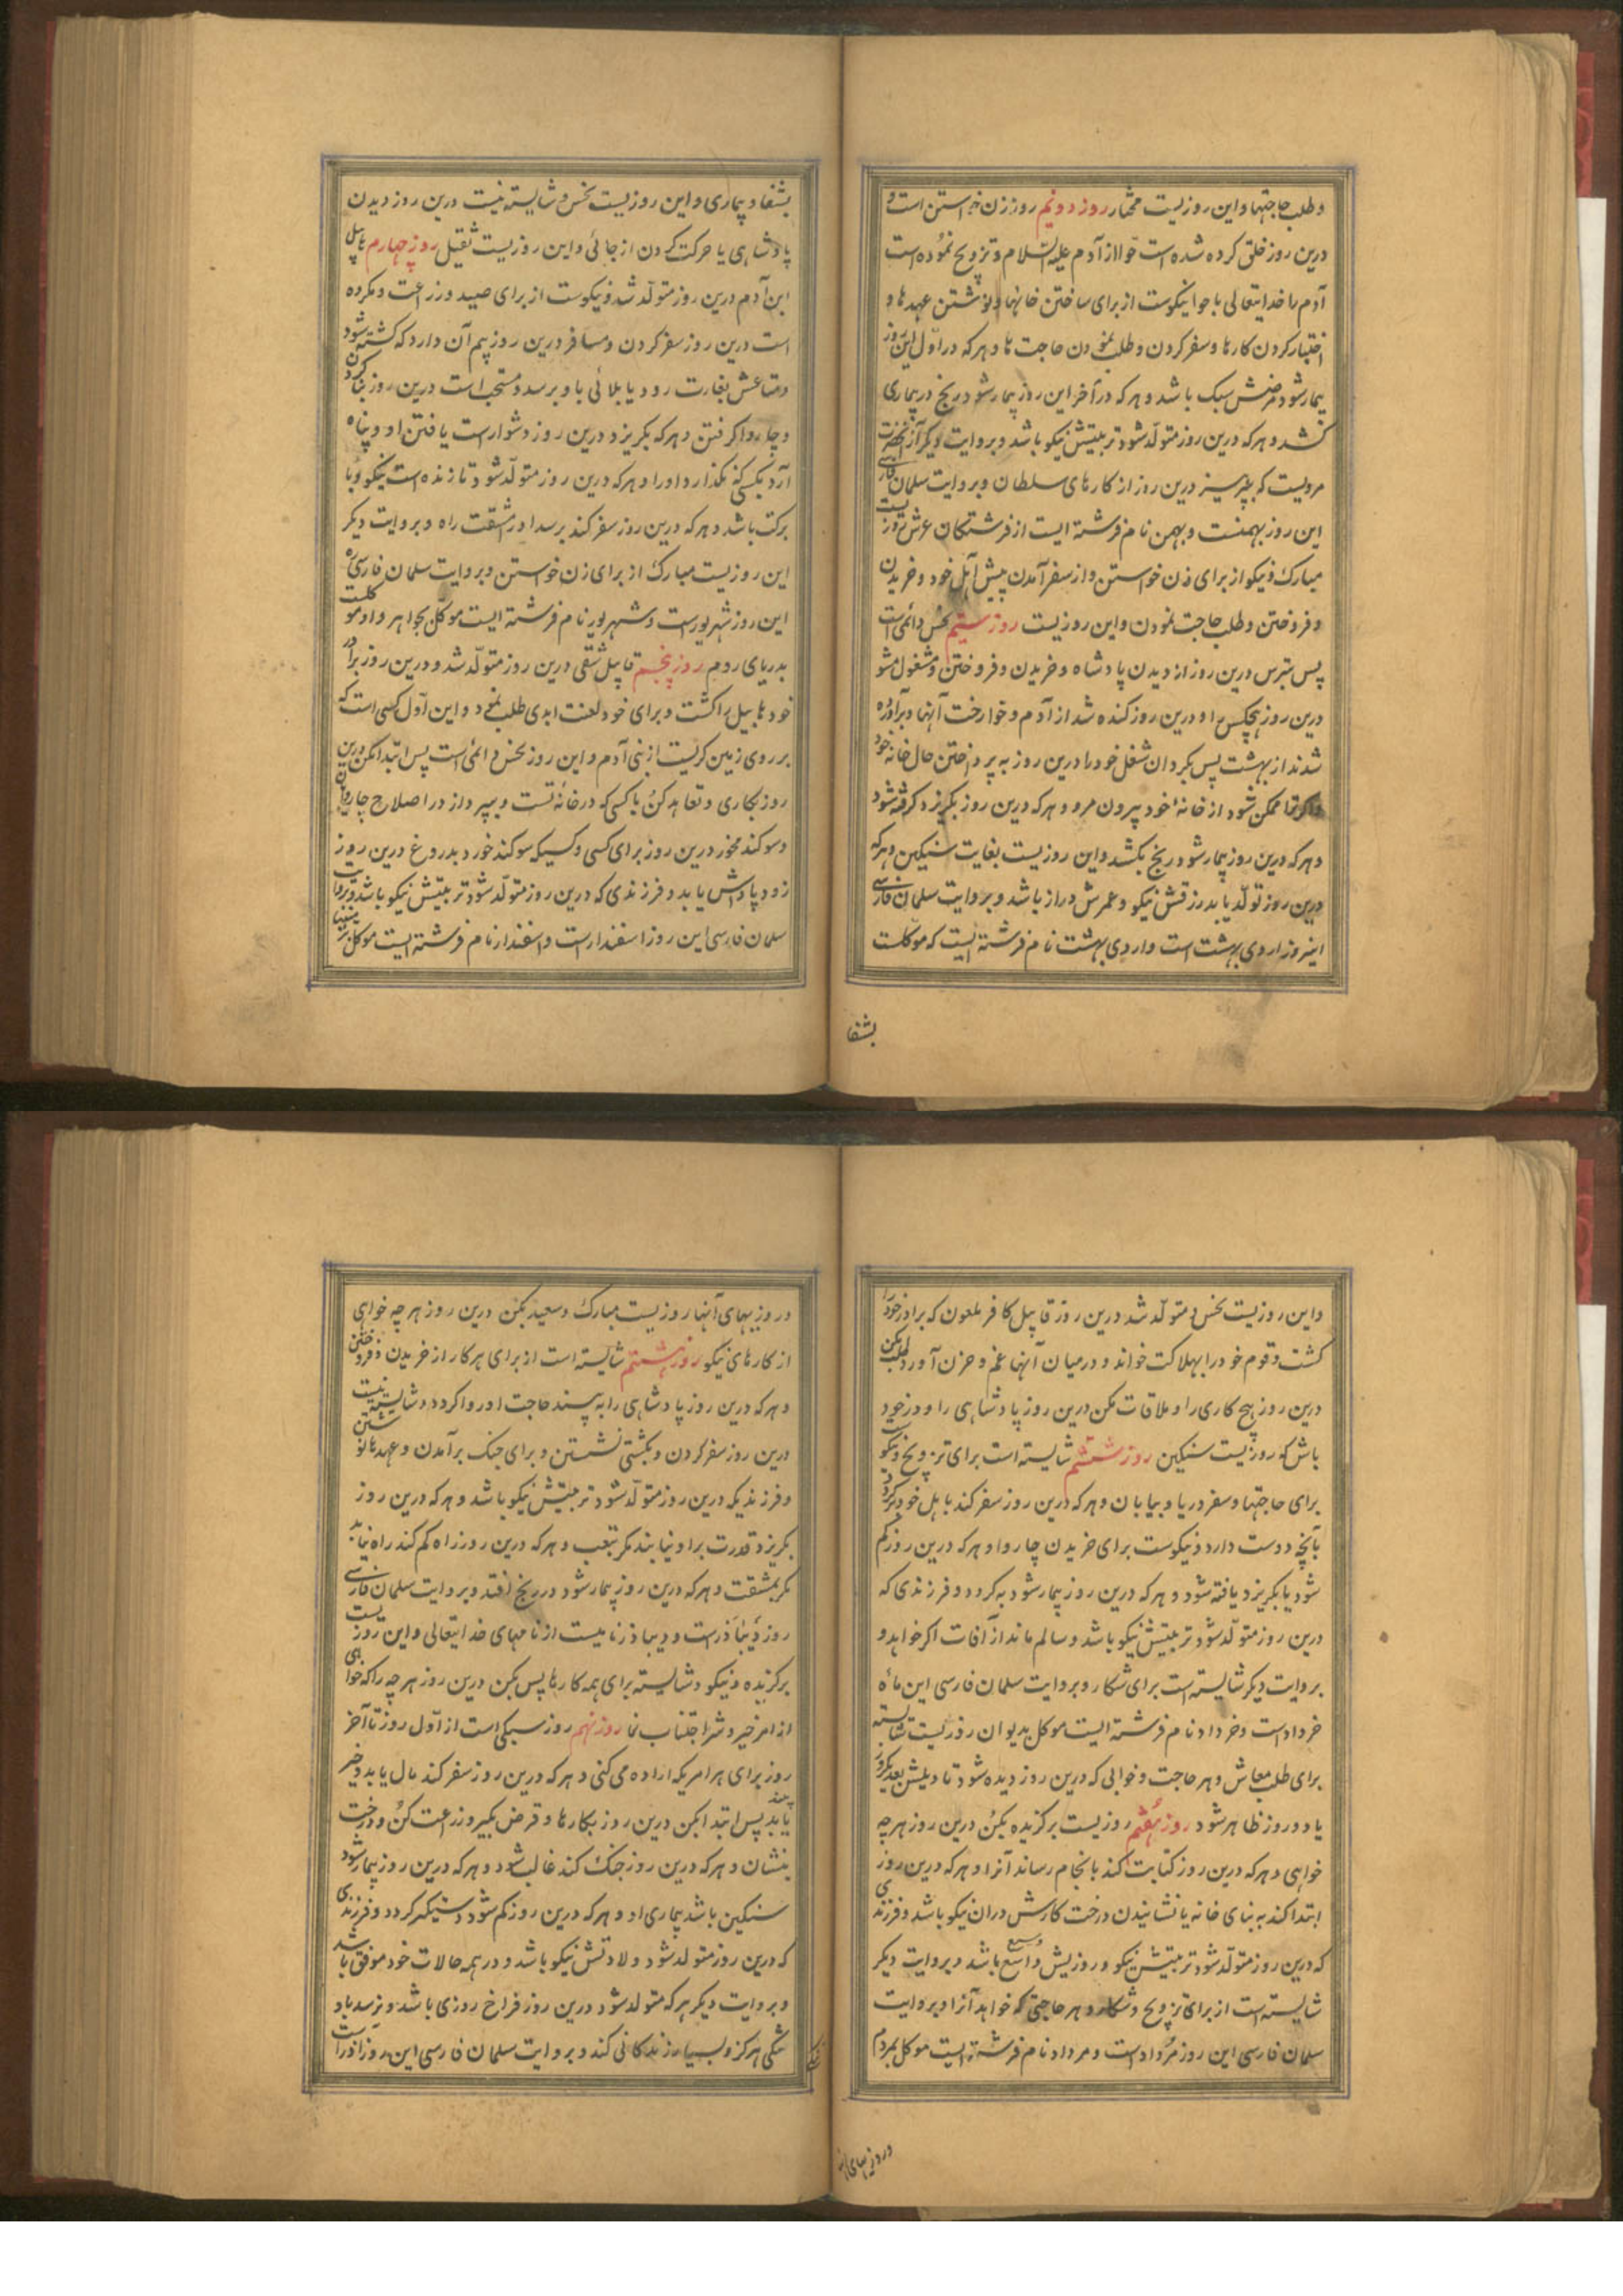 و طلب حاجتها و این روزیست مختار روز دویم روز زن خواستن است و
درین روز خلق کرده شده است حوا از آدم علیه السلام و تزویج نموده است
آدم را خدایتعالی با حوا نیکوست از برای ساختن خانها و نوشتن عهدها و
اختیار کردن کارها و سفر کردن و طلب نمودن حاجت ها و هرکه در اول این روز
بیمار شود مرضش سبک باشد و هرکه در آخر این روز بیمار شود رنج در بیماری
کشد و هرکه درین روز متولد شود تربیتش نیکو باشد و بروایت دیگر از آنحضرت
مرویست که بپرهیز درین روز از کارهای سلطان و بروایت سلمان فارسی
این روز بهمنست و بهمن نام فرشته ایست از فرشتگان عرش روزیست
مبارک و نیکو از برای زن خواستن و از سفر آمدن پیش اهل خود و خریدن
و فروختن و طلب حاجت نمودن و این روزیست روز سیم نحس دائمی است
پس بترس درین روز از دیدن پادشاه و خریدن و فروختن و مشغول مشو
درین روز بهیچکس و درین روز کنده شد از آدم و حوا رخت آنها و برآورده
شدند از بهشت پس بگردان شغل خود را درین روز به پرداختن حال خانه خود
و اگر ترا ممکن شود از خانه خود بیرون مرو و هرکه درین روز بگریزد گرفته شود
و هرکه درین روز بیمار شود رنج بکشد و این روزیست بغایت سنگین و هرکه
درین روز تولد یابد رزقش نیکو و عمرش دراز باشد و بروایت سلمان فارسی
اینروز اردی بهشت است و اردی بهشت نام فرشته ایست که موکلست
بشفا
بشفا و بیماری و این روزیست نحس و شایسته نیست درین روز دیدن
پادشاهی یا حرکت کردن از جائی و این روزیست ثقیل روز چهارم هابیل
ابن آدم درین روز متولد شد و نیکوست از برای صید و زراعت و مکروه
است درین روز سفر کردن و مسافر درین روز بیم آن دارد که کشته شود
و متاعش بغارت رود یا بلائی باو برسد و مستحب است درین روز بنا کردن
و چاروا گرفتن و هرکه بگریزد درین روز دشوار است یافتن او و پناه
آرد بکسی که نگذارد او را و هرکه درین روز متولد شود تا زنده است نیکو و با
برکت باشد و هرکه درین روز سفر کند برسد او را مشقت راه و بروایت دیگر
این روزیست مبارک از برای زن خواستن و بروایت سلمان فارسی
این روز شهریور است و شهریور نام فرشته ایست موکل بجواهر و او موکلست
بدریای روم روز پنجم قابیل شقی درین روز متولد شد و درین روز برادر
خود هابیل را کشت و برای خود لعنت ابدی طلب نمود و این اول کسی است که
بر روی زمین گریست از بنی آدم و این روز نحس دائمی است پس ابتدا مکن درین
روز بکاری و تعاهد کن با کسی که در خانه تست و بپرداز در اصلاح چارپایان
و سوگند مخور درین روز برای کسی و کسیکه سوگند خورد بدروغ درین روز
زود پاداش یابد و فرزندی که درین روز متولد شود تربیتش نیکو باشد و بروایت
سلمان فارسی این روز اسفندار است و اسفندار نام فرشته ایست موکل بزمینها
و این روزیست نحس و متولد شد درین روز قابیل کافر ملعون که برادر خود را
کشت و قوم خود را بهلاکت خواند و درمیان آنها غم و حزن آورد طلب مکن
درین روز هیچ کاری را و ملاقات مکن درین روز پادشاهی را و در خود
باش که روزیست سنگین روز ششم شایسته است برای تزویج و نیکوست
برای حاجتها و سفر دریا و بیابان و هرکه درین روز سفر کند باهل خود برگردد
بآنچه دوست دارد و نیکوست برای خریدن چاروا و هرکه درین روز گم
شود یا بگریزد یافته شود و هرکه درین روز بیمار شود به گردد و فرزندی که
درین روز متولد شود تربیتش نیکو باشد و سالم ماند از آفات اگر خواهد و
بروایت دیگر شایسته است برای شکار و بروایت سلمان فارسی این ماه
خرداد است و خرداد نام فرشته ایست موکل بدیوان روزیست شایسته
برای طلب معاش و هر حاجت و خوابی که درین روز دیده شود تاویلش بعد یکروز
یا دو روز ظاهر شود روز هفتم روزیست برگزیده بکن درین روز هر چه
خواهی و هرکه درین روز کتابت کند بانجام رساند آنرا و هرکه درین روز
ابتدا کند به بنای خانه یا نشانیدن درخت کارش دران نیکو باشد و فرزندی
که درین روز متولد شود تربیتش نیکو و روزیش واسع باشد و بروایت دیگر
شایسته است از برای تزویج و شکار و هر حاجتی که خواهد آنرا و بروایت
سلمان فارسی این روز مرداد است و مرداد نام فرشته ایست موکل بمردم
و روزیهای آنها
و روزیهای آنها روزیست مبارک و سعید بکن درین روز هر چه خواهی
از کارهای نیکو روز هشتم شایسته است از برای هر کار از خریدن و فروختن
و هرکه درین روز پادشاهی را به بیند حاجت او روا گردد و شایسته نیست
درین روز سفر کردن و بکشتی نشستن و برای جنگ برآمدن و عهدها نوشتن
و فرزندیکه درین روز متولد شود تربیتش نیکو باشد و هرکه درین روز
بگریزد قدرت براو نیابند مگر بتعب و هرکه درین روز راه گم کند راه نیابد
مگر بمشقت و هرکه درین روز بیمار شود در رنج افتد و بروایت سلمان فارسی
روز دیباذر است و دیباذر نامیست از نامهای خدایتعالی و این روزیست
برگزیده و نیکو و شایسته برای همه کارها پس بکن درین روز هر چه را که خواهی
از امر خیر و شر اجتناب نما روز نهم روز سبکی است از اول روز تا آخر
روز برای هر امریکه اراده می کنی و هرکه درین روز سفر کند مال یابد و خیر بیند
پس ابتدا بکن درین روز بکارها و قرض بگیر و زراعت کن و درخت
بنشان و هرکه درین روز جنگ کند غالب شود و هرکه درین روز بیمار شود
سنگین باشد بیماری او و هرکه درین روز گم شود دستگیر گردد و فرزندی
که درین روز متولد شود ولادتش نیکو باشد و در همه حالات خود موفق باشد
و بروایت دیگر هرکه متولد شود درین روز فراخ روزی باشد و نرسد باو
تنگی هرگز و بسیار زندگانی کند و بروایت سلمان فارسی این روز آذر است